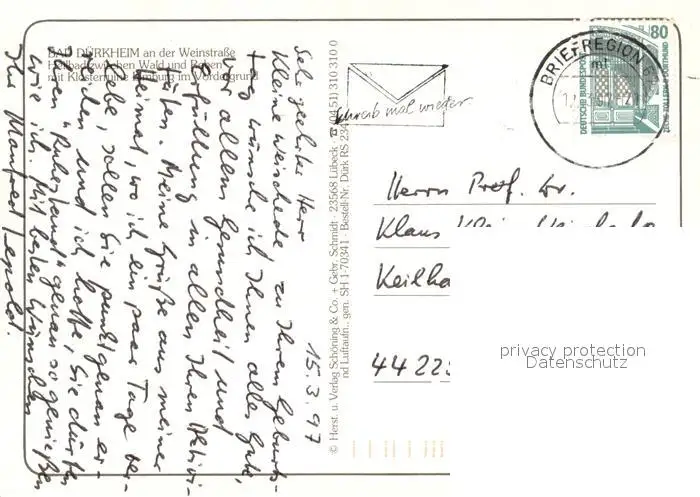 BAD DÜRKHEIM an der Weinstraße
Heilbad zwischen Wald und Reben
mit Klosterruine Limburg im Vordergrund
15.3.97
Sehr geehrter Herr
Kleine Weischede, zu Ihrem Geburts-
tag wünsche ich Ihnen alles Gute,
vor allem Gesundheit und
Erfüllung in allen Ihren Aktivi-
täten. Meine Grüße aus meiner
Heimat, wo ich ein paar Tage ver-
lebe, sollen Sie punktgenau er-
reichen und ich hoffe, Sie dürfen
Ihren "Ruhestand" genau so genießen
wie ich. Mit besten Wünschen
Ihr Manfred
© Herst. u. Verlag Schöning & Co. + Gebr. Schmidt · 23568 Lübeck ☎ (04 51) 310 310 0
nd Luftaufn., gen. SH 1-70341 · Bestell-Nr. Dürk RS 234
Schreib mal wieder
BRIEFREGION 6
80
DEUTSCHE BUNDESPOST
Herrn Prof. Dr.
Klaus
Keilha
44225
privacy protection
Datenschutz